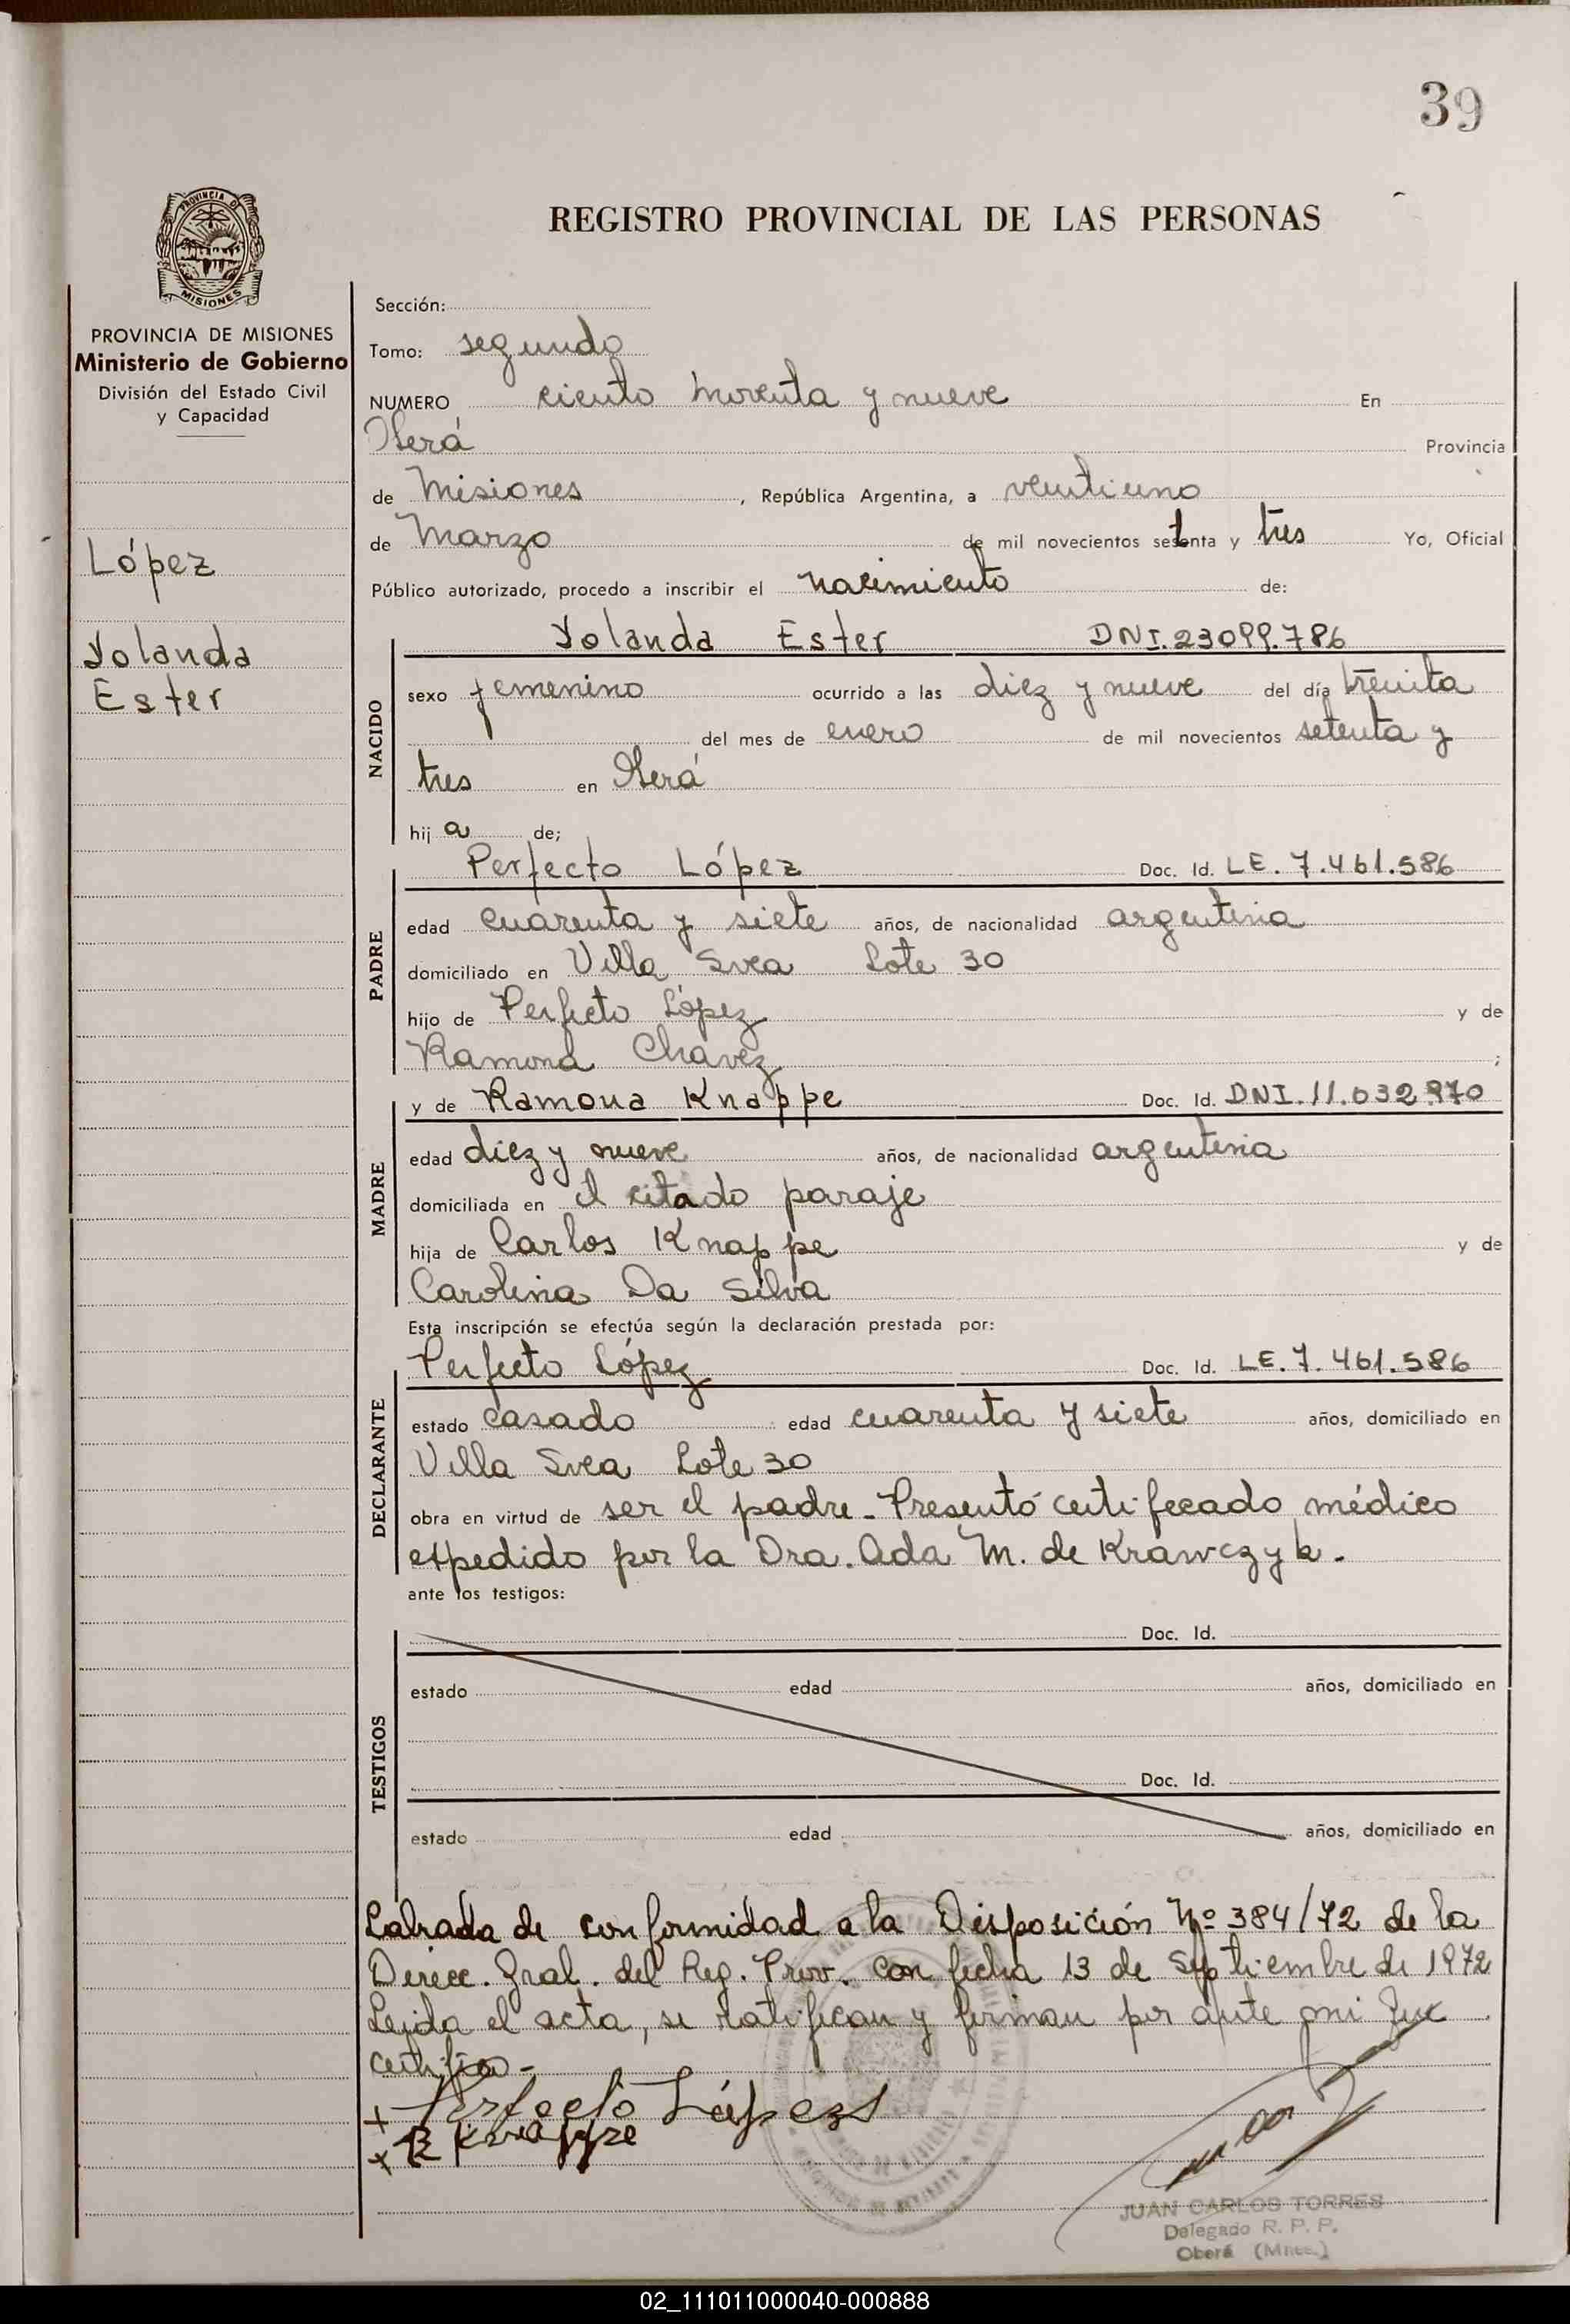 39
REGISTRO PROVINCIAL DE LAS PERSONAS
PROVINCIA DE
MISIONES
PROVINCIA DE MISIONES
Ministerio de Gobierno
División del Estado Civil
y Capacidad
López
Yolanda
Ester
Sección:
Tomo: segundo
NUMERO ciento noventa y nueve En
Oberá Provincia
de Misiones, República Argentina, a veintiuno
de Marzo de mil novecientos setenta y tres Yo, Oficial
Público autorizado, procedo a inscribir el nacimiento de:
NACIDO
Yolanda Ester DNI. 23099.786
sexo femenino ocurrido a las diez y nueve del día treinta
del mes de enero de mil novecientos setenta y
tres en Oberá
hij a de;
PADRE
Perfecto López Doc. Id. LE. 7.461.586
edad cuarenta y siete años, de nacionalidad argentina
domiciliado en Villa Svea Lote 30
hijo de Perfecto López y de
Ramona Chavez ;
MADRE
y de Ramona Knappe Doc. Id. DNI. 11.032.970
edad diez y nueve años, de nacionalidad argentina
domiciliada en el citado paraje
hija de Carlos Knappe y de
Carolina Da Silva
Esta inscripción se efectúa según la declaración prestada por:
DECLARANTE
Perfecto López Doc. Id. LE. 7.461.586
estado casado edad cuarenta y siete años, domiciliado en
Villa Svea Lote 30
obra en virtud de ser el padre - Presentó certificado médico
expedido por la Dra. Ada M. de Krawczyk.
ante los testigos:
TESTIGOS
Doc. Id.
estado edad años, domiciliado en
Doc. Id.
estado edad años, domiciliado en
Labrada de conformidad a la Disposición Nº 384/72 de la
Direcc. Gral. del Reg. Prov. con fecha 13 de Septiembre de 1972
Leida el acta, se ratifican y firman por ante mi que
certifico -
+ Perfecto López
x R Knappe
JUAN CARLOS TORRES
Delegado R. P. P.
Oberá (Mnes.)
02_111011000040-000888